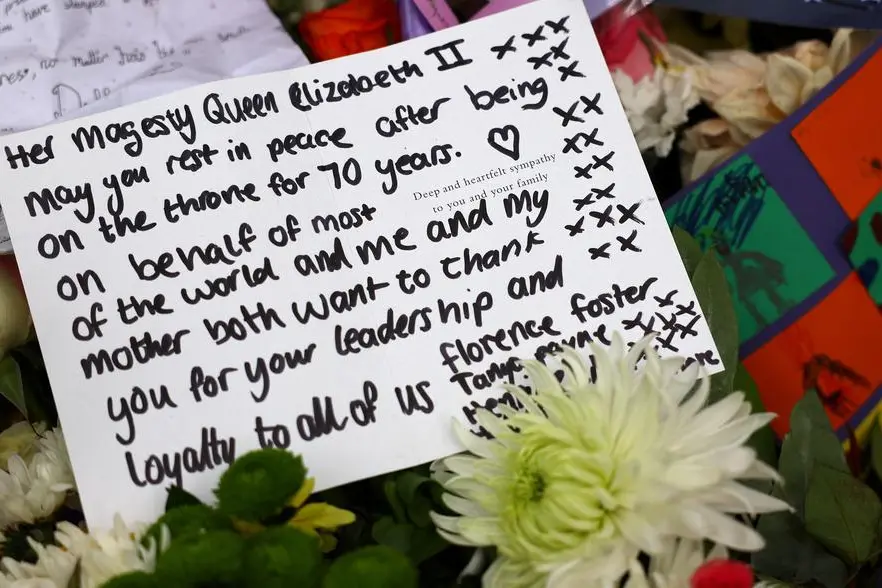 Her Magesty Queen Elizabeth II xxx
may you rest in peace after being
on the throne for 70 years. ♡
Deep and heartfelt sympathy
to you and your family
on behalf of most
of the world and me and my
mother both want to thank
you for your leadership and
loyalty to all of us
florence foster
payne
no matter